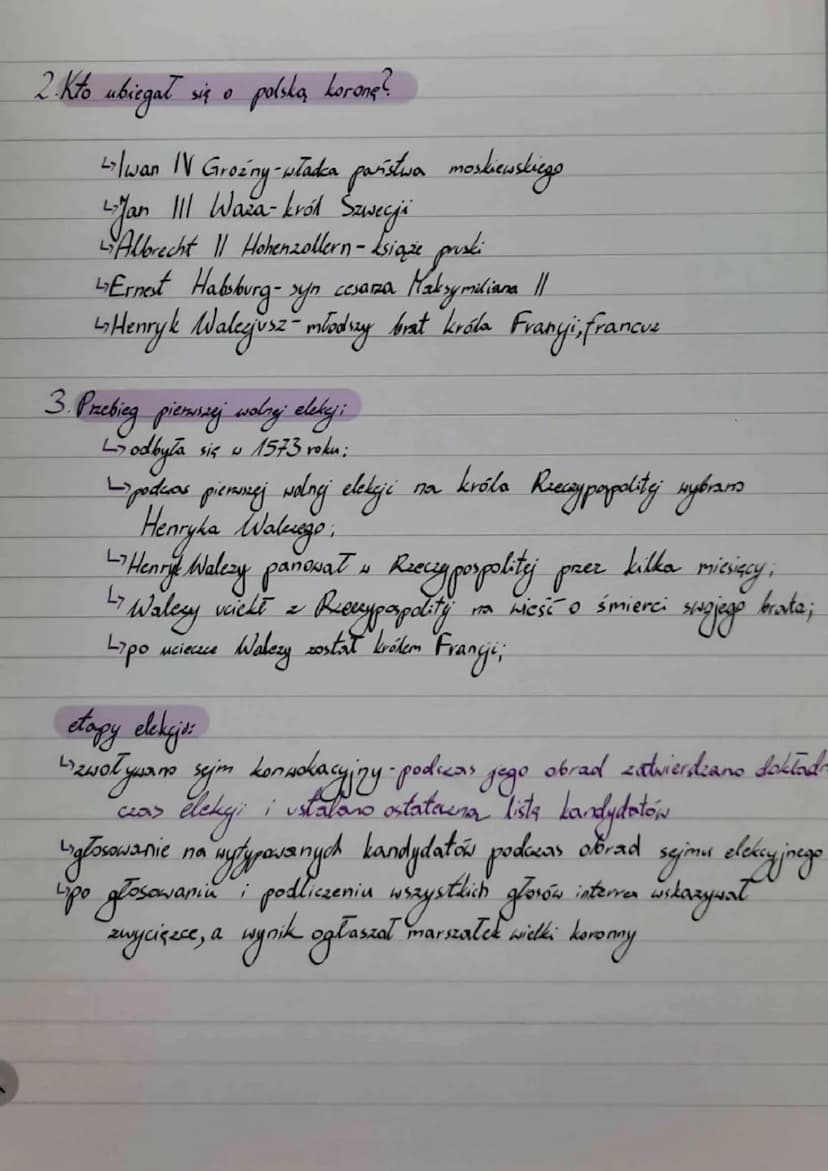 2. Kto ubiegał się o polską koronę?
↳Iwan IV Groźny-władca państwa moskiewskiego
↳Jan III Waza-król Szwecji
↳Albrecht II Hohenzollern-książe pruski
↳Ernest Habsburg-syn cesarza Maksymiliana II
↳Henryk Walezjusz-młodszy brat króla Francji, francuz
3. Przebieg pierwszej wolnej elekcji
↳odbyła się w 1573 roku;
↳podczas pierwszej wolnej elekcji na króla Rzeczypospolitej wybrano
Henryka Walezego;
↳Henryk Walezy panował w Rzeczypospolitej przez kilka miesięcy;
↳Walezy uciekł z Rzeczypospolitej na wieść o śmierci swojego brata;
↳po ucieczce Walezy został królem Francji;
etapy elekcji:
↳zwoływano sejm konwokacyjny-podczas jego obrad zatwierdzano dokładn
czas elekcji i ustalano ostateczną listę kandydatów
↳głosowanie na wytypowanych kandydatów podczas obrad sejmu elekcyjnego
↳po głosowaniu i podliczeniu wszystkich głosów interrex wskazywał
zwycięzce, a wynik ogłaszał marszałek wielki koronny